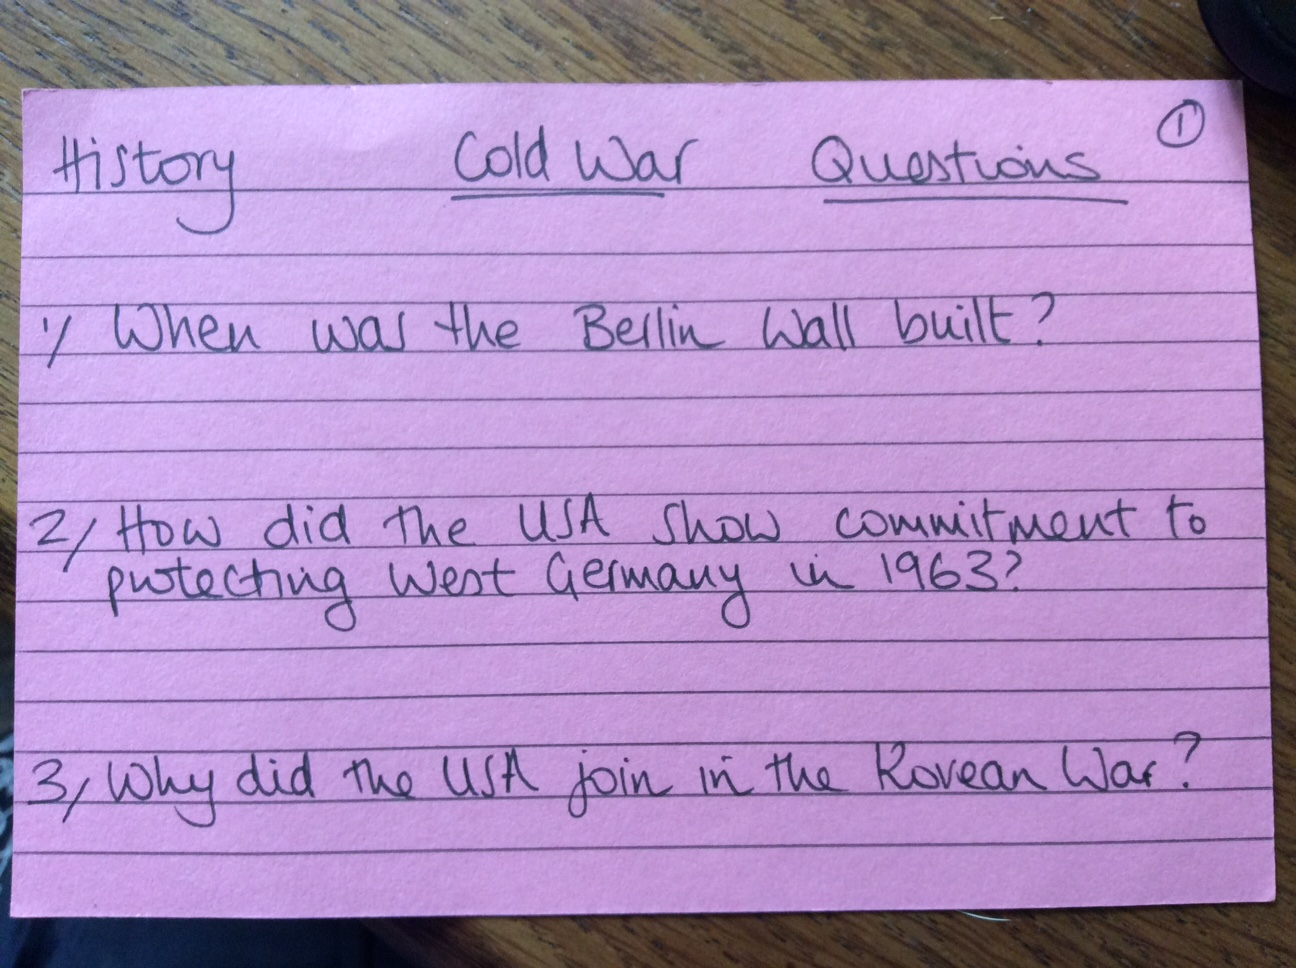 History Cold War Questions ①
1/ When was the Berlin Wall built?
2/ How did the USA show commitment to
protecting West Germany in 1963?
3/ Why did the USA join in the Korean War?